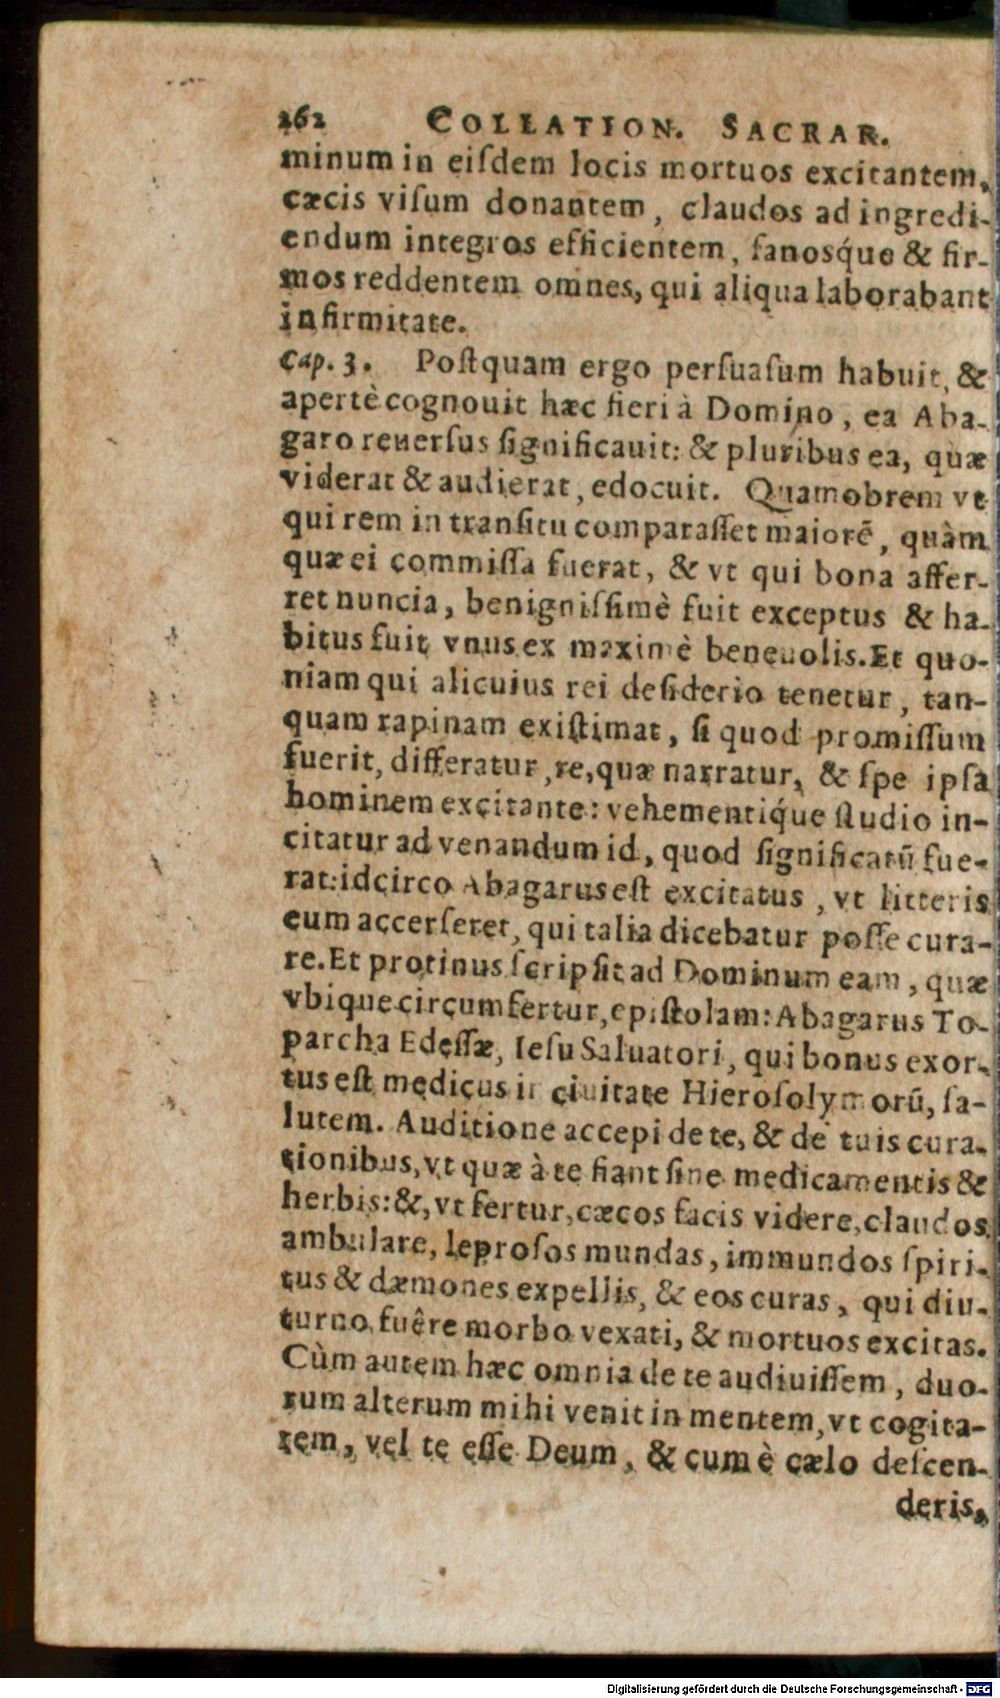 262 COLLATION. SACRAR.
minum in eiſdem locis mortuos excitantem,
cæcis viſum donantem, claudos ad ingredi-
endum integros efficientem, ſanosq́ue & fir-
mos reddentem omnes, qui aliqua laborabant
infirmitate.
Cap. 3. Poſtquam ergo perſuaſum habuit, &
apertè cognouit hæc fieri à Domino, ea Aba-
garo reuerſus ſignificauit: & pluribus ea, quæ
viderat & audierat, edocuit. Quamobrem vt
qui rem in tranſitu comparaſſet maiorē, quàm
quæ ei commiſſa fuerat, & vt qui bona affer-
ret nuncia, benigniſſimè fuit exceptus & ha-
bitus fuit vnus ex maximè beneuolis. Et quo-
niam qui alicuius rei deſiderio tenetur, tan-
quam rapinam exiſtimat, ſi quod promiſſum
fuerit, differatur, re, quæ narratur, & ſpe ipſa
hominem excitante: vehementiq́ue ſtudio in-
citatur ad venandum id, quod ſignificatū fue-
rat: idcirco Abagarus eſt excitatus, vt litteris
eum accerſeret, qui talia dicebatur poſſe cura-
re. Et protinus ſcripſit ad Dominum eam, quæ
vbique circumfertur, epiſtolam: Abagarus To-
parcha Edeſſæ, Ieſu Saluatori, qui bonus exor-
tus eſt medicus in ciuitate Hieroſolymorū, ſa-
lutem. Auditione accepi de te, & de tuis cura-
tionibus, vt quæ à te fiant ſine medicamentis &
herbis: &, vt fertur, cæcos facis videre, claudos
ambulare, leproſos mundas, immundos ſpiri-
tus & dæmones expellis, & eos curas, qui diu-
turno fuêre morbo vexati, & mortuos excitas.
Cùm autem hæc omnia de te audiuiſſem, duo-
rum alterum mihi venit in mentem, vt cogita-
rem, vel te eſſe Deum, & cum è cælo deſcen-
deris,
Digitalisierung gefördert durch die Deutsche Forschungsgemeinschaft - DFG